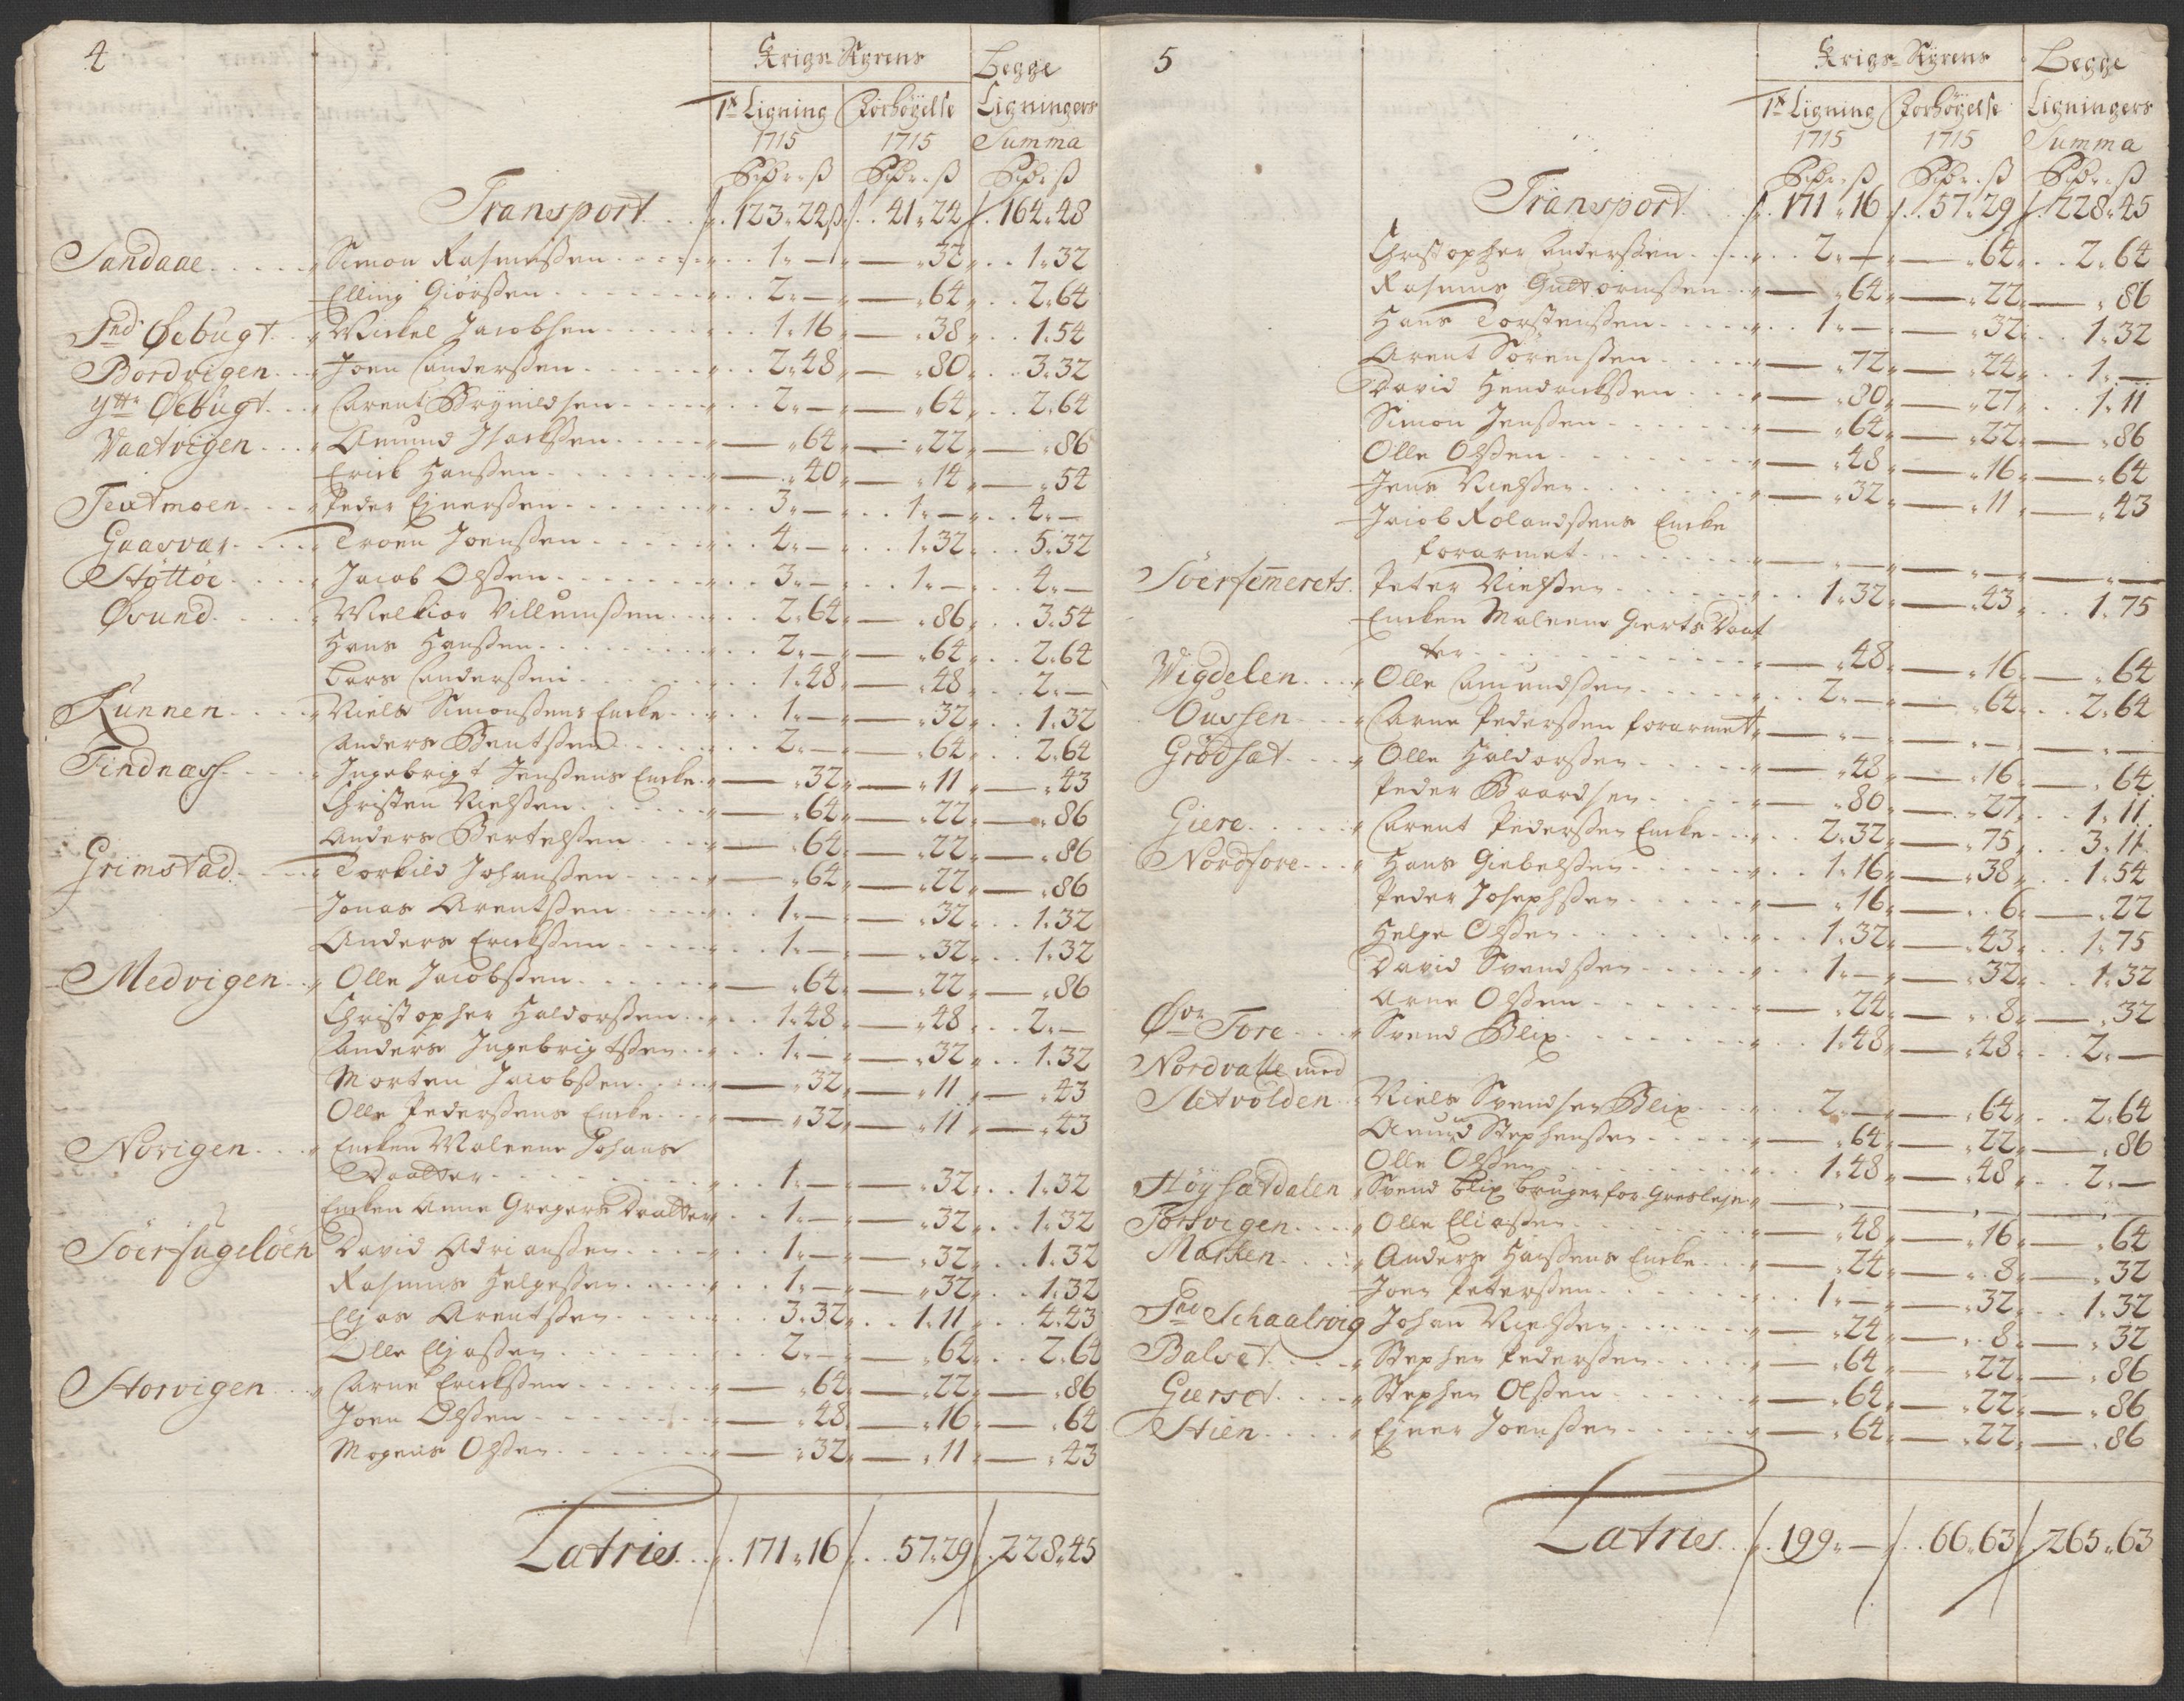 4
Krigs Styrens Begge
1te Ligning Forhöyelse Ligningers
1715 1715 Summa
Rdr ß Rdr ß Rdr ß
Transport 123 " 24 ß 41 " 24 164 " 48
Sandaae Simon Rasmusßen 1 " — — " 32 1 " 32
Elling Giörsßen 2 " — — " 64 2 " 64
Ind Øebugt Mickel Jacobsen 1 " 16 — " 38 1 " 54
Bordvigen Joen Andersßen 2 " 48 — " 80 3 " 32
Ytte Øebugt Arent Brynildsen 2 " — — " 64 2 " 64
Vaatvigen Amund Isacksßen — " 64 — " 22 — " 86
Erick Hansßen — " 40 — " 14 — " 54
Texmoen Peder Ejnersßen 3 " — 1 " — 4 " —
Gaasvær Troen Joensßen 4 " — 1 " 32 5 " 32
Støttøe Jacob Olsßen 3 " — 1 " — 4 " —
Øsund Melkior Villumsßen 2 " 64 — " 86 3 " 54
Hans Hansßen 2 " — — " 64 2 " 64
Lars Andersßen 1 " 48 — " 48 2 " —
Kunnen Niels Simonsßens Encke 1 " — — " 32 1 " 32
Anders Bentsßen 2 " — — " 64 2 " 64
Findnæss Ingebrigt Jensßens Encke — " 32 — " 11 — " 43
Christen Nielsßen — " 64 — " 22 — " 86
Anders Bertelsßen — " 64 — " 22 — " 86
Grimstad Torkild Johansßen — " 64 — " 22 — " 86
Jonas Arentsßen 1 " — — " 32 1 " 32
Anders Ericksßen 1 " — — " 32 1 " 32
Medvigen Olle Jacobsßen — " 64 — " 22 — " 86
Christopher Haldorsßen 1 " 48 — " 48 2 " —
Anders Ingebrigtsßen 1 " — — " 32 1 " 32
Morten Jacobsßen — " 32 — " 11 — " 43
Olle Pedersßens Encke — " 32 — " 11 — " 43
Norigen Encken Maleene Johans
Daatter 1 " — — " 32 1 " 32
Encken Anne Gregers Daatter 1 " — — " 32 1 " 32
Söerfugelöen David Adriansßen 1 " — — " 32 1 " 32
Rasmus Helgesßen 1 " — — " 32 1 " 32
Elias Arentsßen 3 " 32 1 " 11 4 " 43
Olle Eliasßen 2 " — — " 64 2 " 64
Storvigen Arne Ericksßen — " 64 — " 22 — " 86
Joen Olsßen — " 48 — " 16 — " 64
Mogens Olsßen — " 32 — " 11 — " 43
Latries 171 " 16 57 " 29 228 " 45
5
Krigs Styrens Begge
1te Ligning Forhöyelse Ligningers
1715 1715 Summa
Rdr ß Rdr ß Rdr ß
Transport 171 " 16 57 " 29 228 " 45
Christopher Andersßen 2 " — — " 64 2 " 64
Rasmus Gudtormsßen — " 64 — " 22 — " 86
Hans Torstensßen 1 " — — " 32 1 " 32
Arent Sörensßen — " 72 — " 24 1 " —
David Hendricksßen — " 80 — " 27 1 " 11
Simon Jensßen — " 64 — " 22 — " 86
Olle Olsßen — " 48 — " 16 — " 64
Jens Nielsßen — " 32 — " 11 — " 43
Jacob Rolandsßens Encke
forarmet — " — — " — — " —
Söerfemerets Peter Nielsßen 1 " 32 — " 43 1 " 75
Encken Maleene Gierts Daat
ter — " 48 — " 16 — " 64
Wigdelen Olle Amundsßen 2 " — — " 64 2 " 64
Oussen Arne Pedersßen forarmet — " — — " — — " —
Grödsæt Olle Haldorsßen — " 48 — " 16 — " 64
Peder Baardsen — " 80 — " 27 1 " 11
Giere Arent Pedersßen Encke 2 " 32 — " 75 3 " 11
Nordfore Hans Giebelsßen 1 " 16 — " 38 1 " 54
Peder Josephsßen — " 16 — " 6 — " 22
Helge Olsßen 1 " 32 — " 43 1 " 75
David Svendsßen 1 " — — " 32 1 " 32
Arne Olsßen — " 24 — " 8 — " 32
Øvr Fore Svend Blix 1 " 48 — " 48 2 " —
Nordvalle med
Sletvolden Niels Svendsen Blix 2 " — — " 64 2 " 64
Amund Stephensßen — " 64 — " 22 — " 86
Olle Olsßen 1 " 48 — " 48 2 " —
Höysætdalen Svend Blix bruger for Gresleje — " — — " — — " —
Torsvigen Olle Eliasßen — " 48 — " 16 — " 64
Marken Anders Hansßens Encke — " 24 — " 8 — " 32
Joen Petersßen 1 " — — " 32 1 " 32
Ind Schaalsvig Johan Nielsßen — " 24 — " 8 — " 32
Balset Stephen Pedersßen — " 64 — " 22 — " 86
Gierset Stephen Olsßen — " 64 — " 22 — " 86
Stien Ejner Joensßen — " 64 — " 22 — " 86
Latries 199 " — 66 " 63 265 " 63